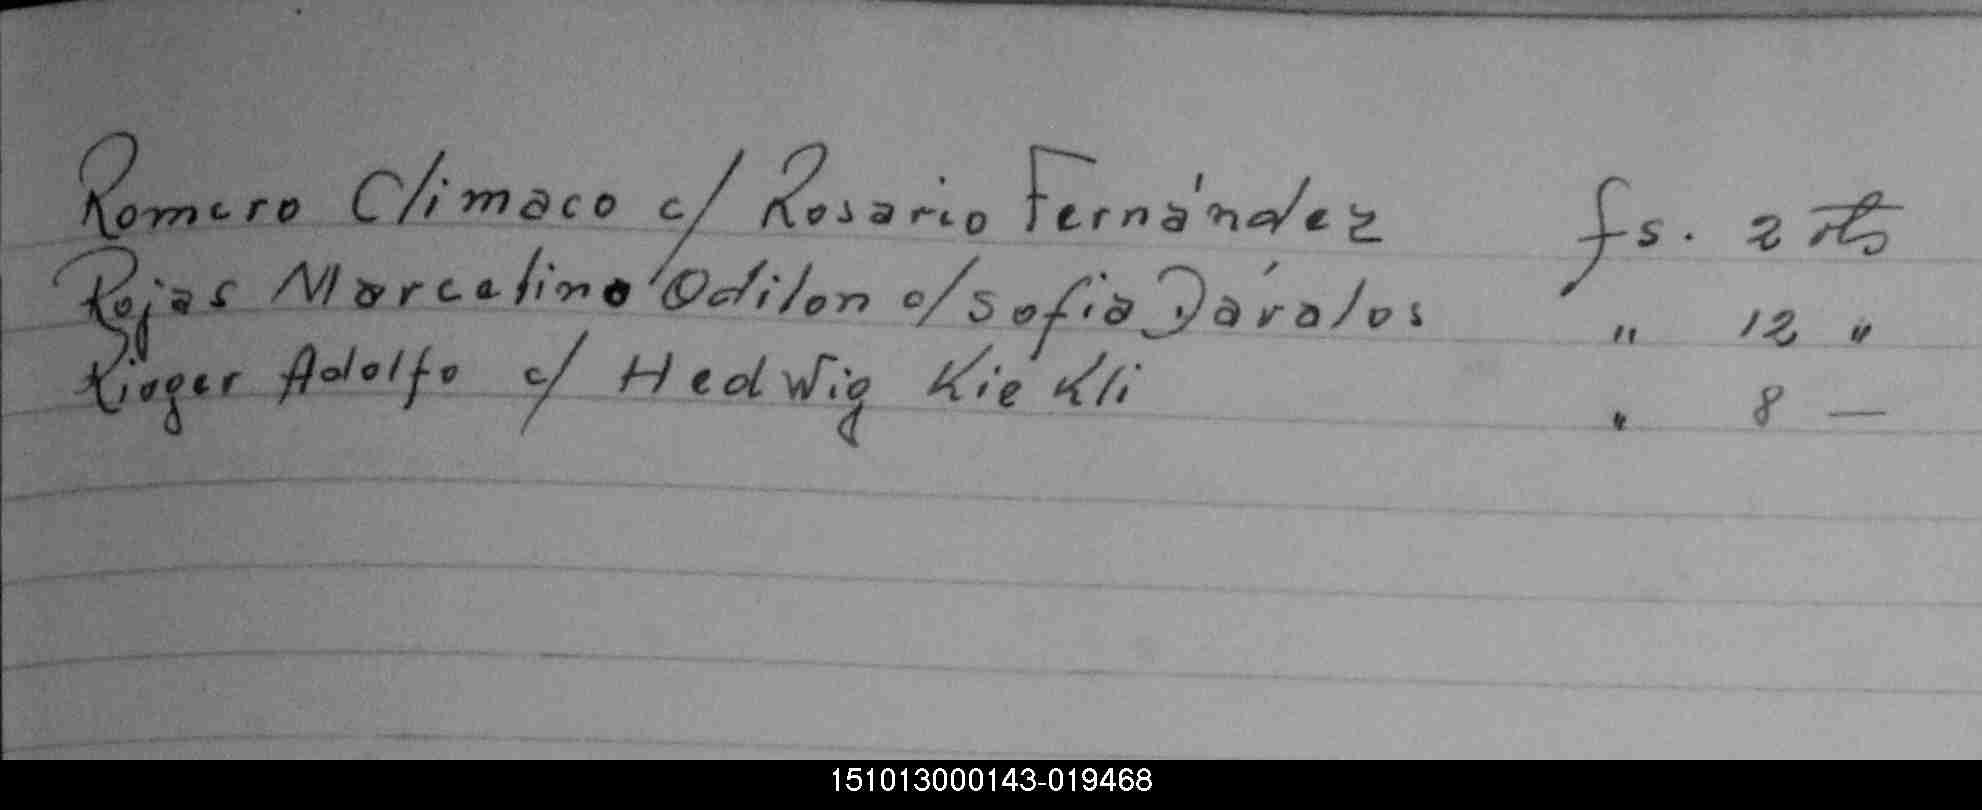 Romero Climaco c/ Rosario Fernández fs. 2 vto
Rojas Marcelino Odilon c/ Sofia Dávalos " 12 "
Adolfo c/ Hedwig Kiekli " 8 —
151013000143-019468